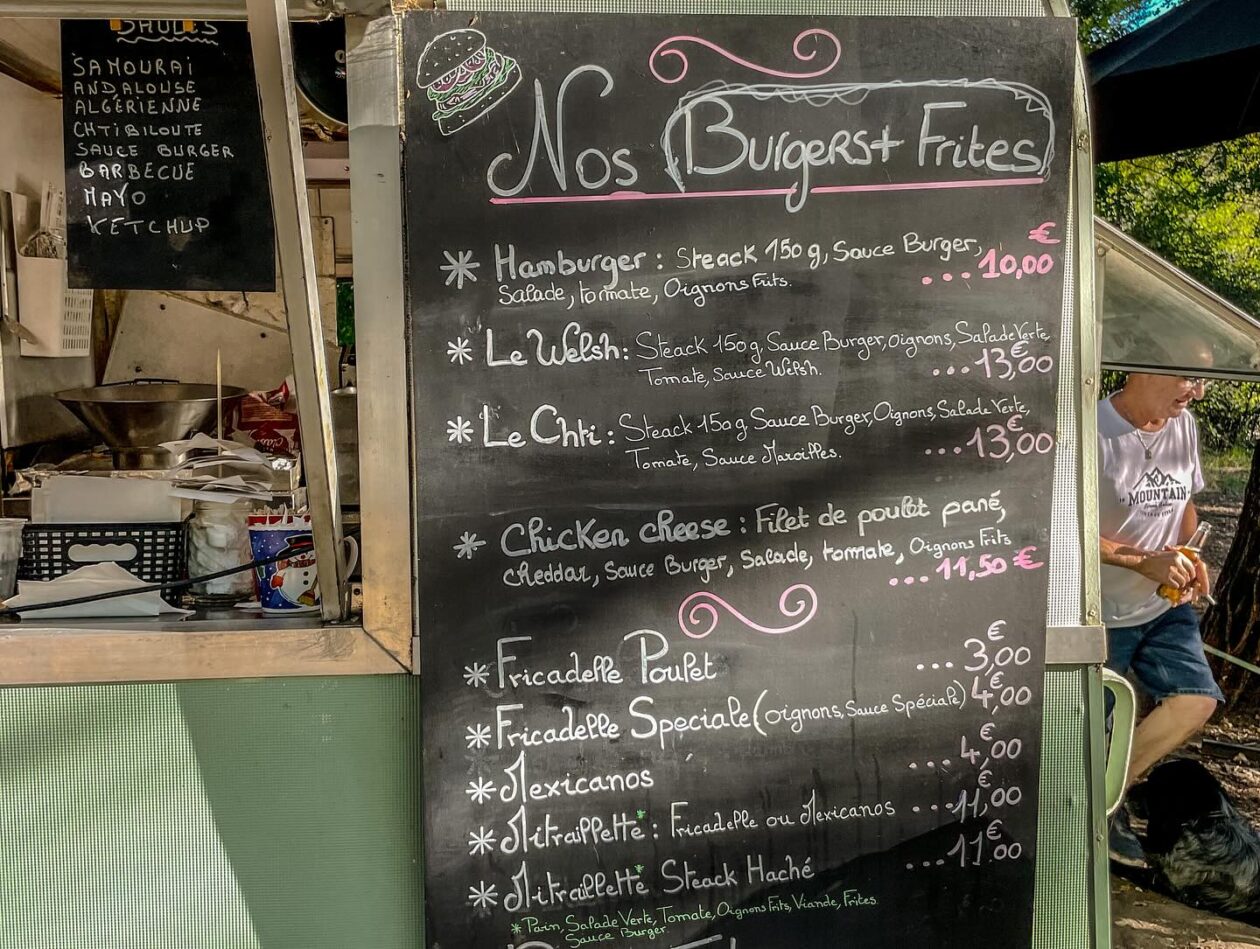 SAUCES
SAMOURAI
ANDALOUSE
ALGÉRIENNE
CHTIBILOUTE
SAUCE BURGER
BARBECUE
MAYO
KETCHUP
Nos Burgers + Frites
* Hamburger : Steack 150 g, Sauce Burger,
Salade, tomate, Oignons Frits. ... 10,00 €
* Le Welsh : Steack 150 g, Sauce Burger, oignons, Salade Verte,
Tomate, Sauce Welsh. ... 13,00 €
* Le Chti : Steack 150 g Sauce Burger, Oignons, Salade Verte,
Tomate, Sauce Maroilles. ... 13,00 €
* Chicken cheese : Filet de poulet pané,
cheddar, Sauce Burger, Salade, tomate, Oignons Frits
... 11,50 €
* Fricadelle Poulet ... 3,00 €
* Fricadelle Speciale (oignons, Sauce Spéciale) 4,00 €
* Mexicanos ... 4,00 €
* Mitraillette* : Fricadelle ou Mexicanos ... 11,00 €
* Mitraillette* Steack Haché ... 11,00 €
* Pain, Salade Verte, Tomate, Oignons Frits, Viande, Frites
Sauce Burger.
MOUNTAIN